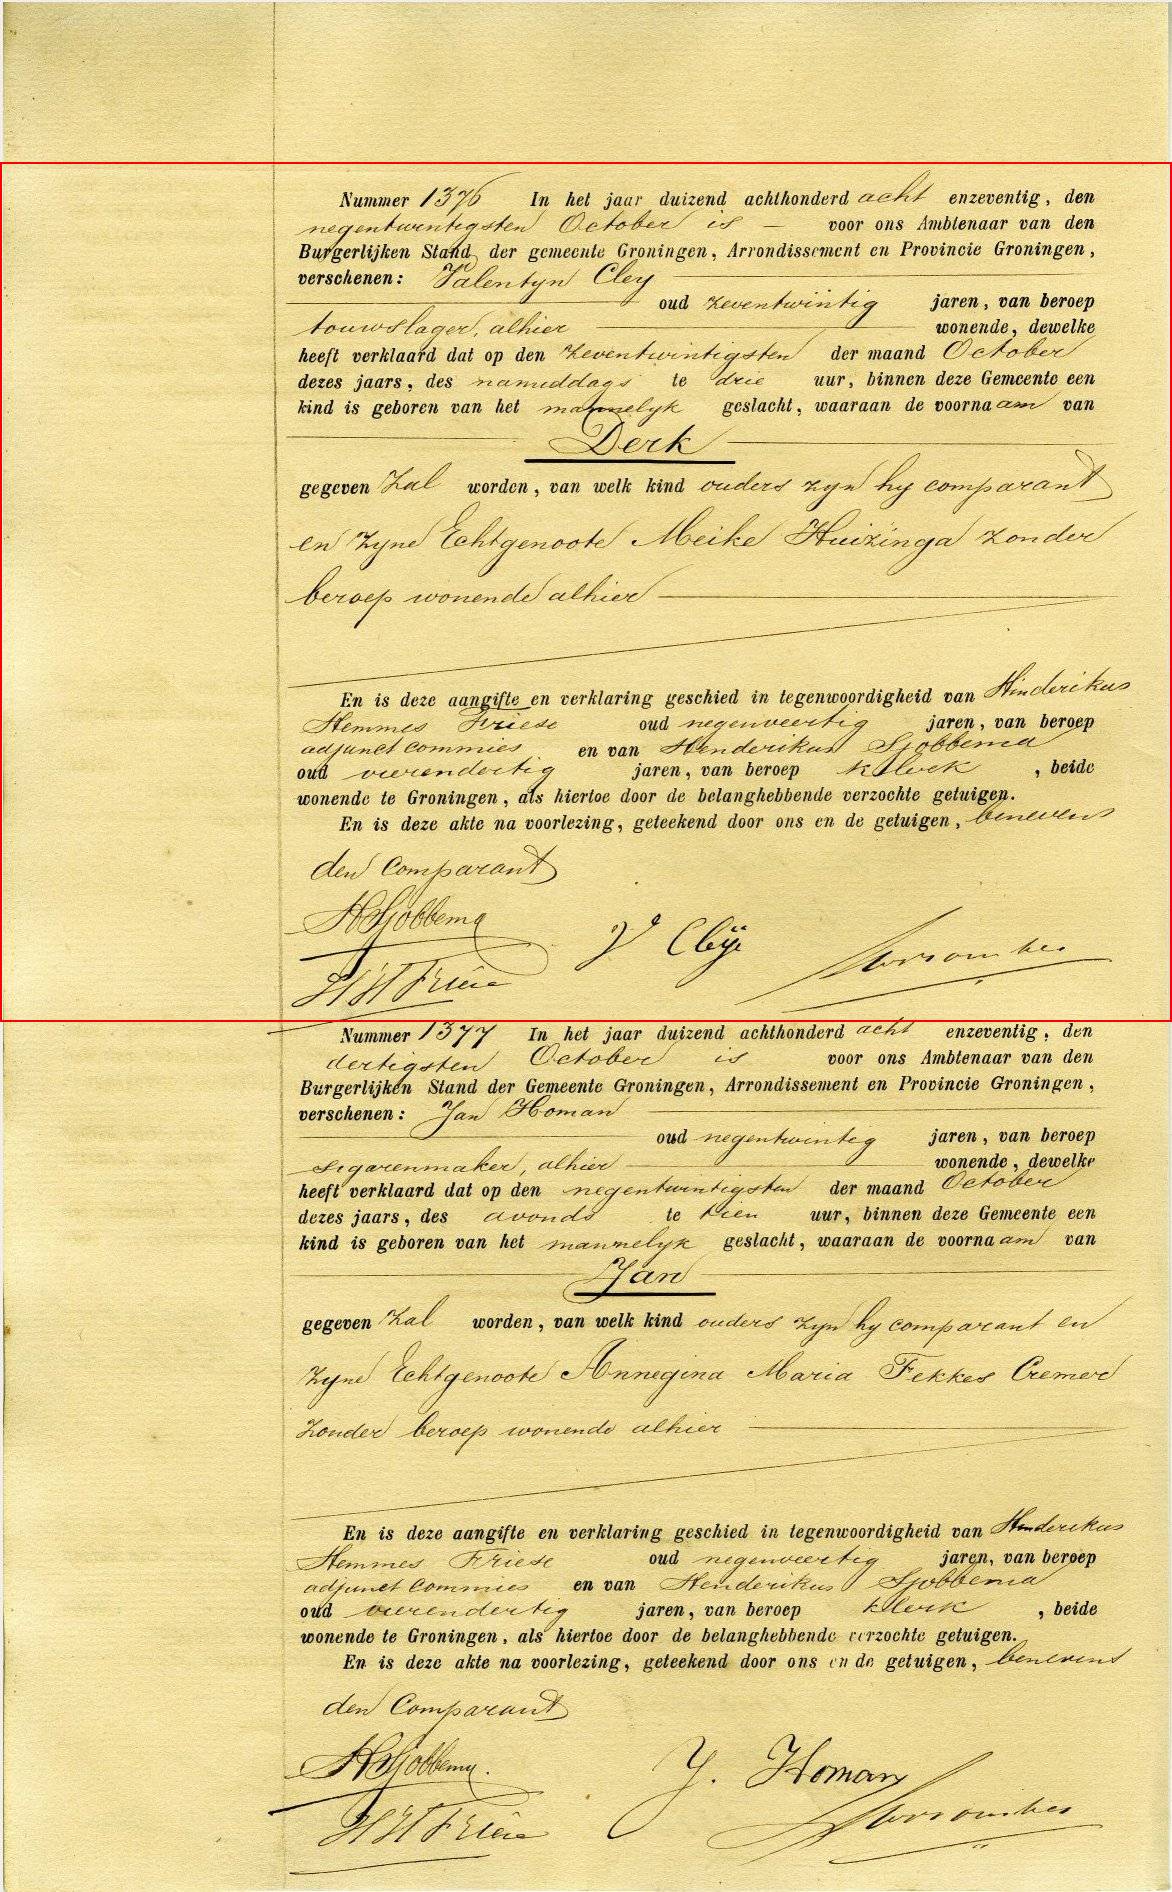 Nummer 1376 In het jaar duizend achthonderd acht enzeventig, den
negentwintigsten October is — voor ons Ambtenaar van den
Burgerlijken Stand der gemeente Groningen, Arrondissement en Provincie Groningen,
verschenen: Valentyn Cley
oud zeventwintig jaren, van beroep
touwslager, alhier wonende, dewelke
heeft verklaard dat op den zeventwintigsten der maand October
dezes jaars, des nameddags te drie uur, binnen deze Gemeente een
kind is geboren van het mannelyk geslacht, waaraan de voornaam van
Derk
gegeven zal worden, van welk kind ouders zyn hy comparant
en zyne Echtgenoote Meike Huizinga zonder
beroep wonende alhier
En is deze aangifte en verklaring geschied in tegenwoordigheid van Hinderikus
Hemmes Friese oud negenveertig jaren, van beroep
adjunct commies en van Henderikus Sjobbema
oud vierendertig jaren, van beroep klerk, beide
wonende te Groningen, als hiertoe door de belanghebbende verzochte getuigen.
En is deze akte na voorlezing, geteekend door ons en de getuigen, benevens
den Comparant
HSjobbema
V Cleÿ
HH Friese
Nummer 1377 In het jaar duizend achthonderd acht enzeventig, den
dertigsten October is voor ons Ambtenaar van den
Burgerlijken Stand der Gemeente Groningen, Arrondissement en Provincie Groningen,
verschenen: Jan Homan
oud negentwintig jaren, van beroep
sigarenmaker, alhier wonende, dewelke
heeft verklaard dat op den negentwintigsten der maand October
dezes jaars, des avonds te tien uur, binnen deze Gemeente een
kind is geboren van het mannelyk geslacht, waaraan de voornaam van
Jan
gegeven zal worden, van welk kind ouders zyn hy comparant en
zyne Echtgenoote Annegina Maria Fekkes Cremer
zonder beroep wonende alhier
En is deze aangifte en verklaring geschied in tegenwoordigheid van Hinderikus
Hemmes Friese oud negenveertig jaren, van beroep
adjunct commies en van Henderikus Sjobbema
oud vierendertig jaren, van beroep klerk, beide
wonende te Groningen, als hiertoe door de belanghebbende verzochte getuigen.
En is deze akte na voorlezing, geteekend door ons en de getuigen, benevens
den Comparant
HSjobbema.
J. Homan
HH Friese